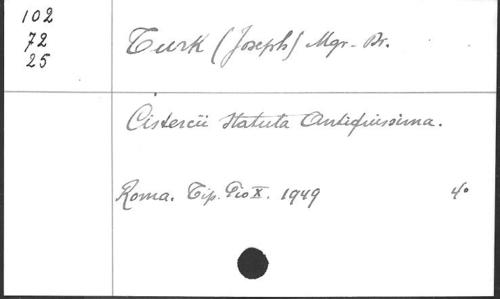 102
72
25
Turk (Joseph) Mgr. Dr.
Cistercii Statuta Antiquissima.
Roma. Tip. Pio X. 1949 4°